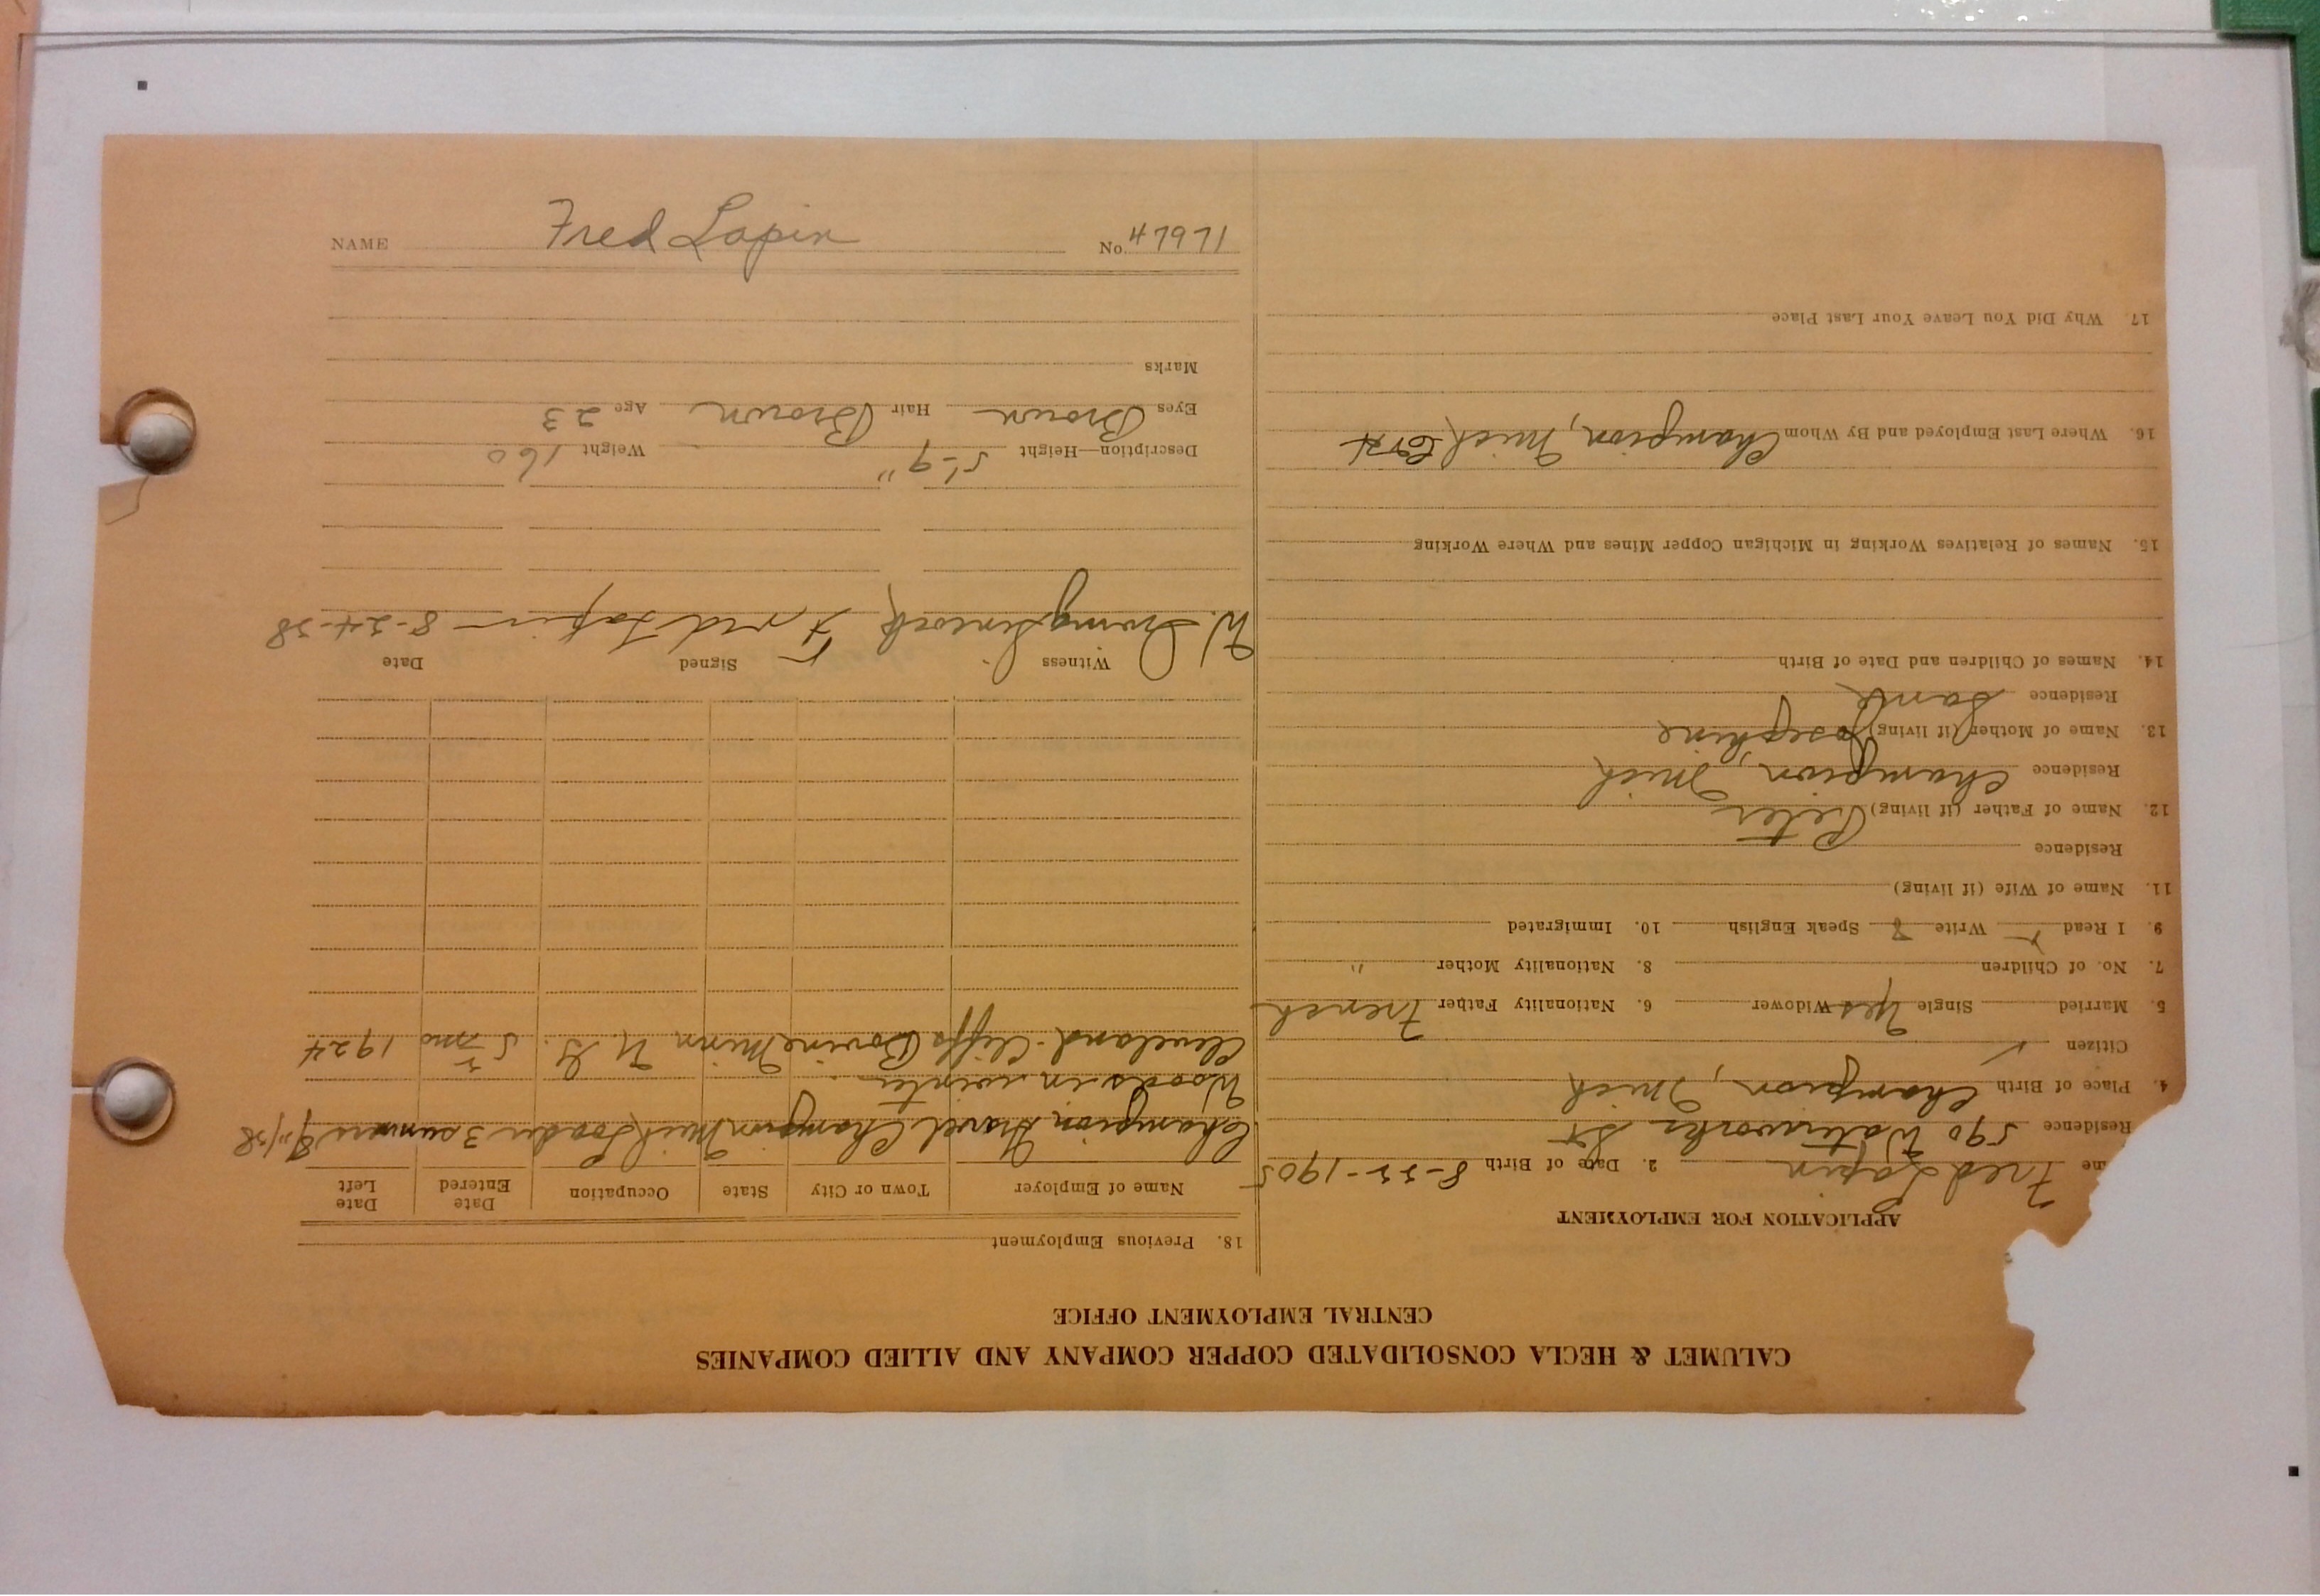 NAME Fred Lapin No 47971
CALUMET & HECLA CONSOLIDATED COPPER COMPANY AND ALLIED COMPANIES
CENTRAL EMPLOYMENT OFFICE
APPLICATION FOR EMPLOYMENT
me Fred Lapin 2. Date of Birth 8-22-1905
Residence 590 Waterworks St
4. Place of Birth Champion, Mich
Citizen ✓
5. Married Single Yes Widower 6. Nationality Father French
7. No. of Children 8. Nationality Mother "
9. I Read Write Speak English 10. Immigrated
11. Name of Wife (if living)
Residence
12. Name of Father (if living) Peter
Residence Champion, Mich
13. Name of Mother (if living) Josephine
Residence Same
14. Names of Children and Date of Birth
15. Names of Relatives Working in Michigan Copper Mines and Where Working
16. Where Last Employed and By Whom Champion, Mich
17. Why Did You Leave Your Last Place
18. Previous Employment
Name of Employer Town or City State Occupation Date Entered Date Left
Champion Gravel Champion Mich Loader 3 summers
Woods in winter
Cleveland-Cliffs Bovine Minn U.G. 5 mo 1924
Witness Signed Date
W. Fred Lapin 8-24-28
Description—Height 5'-9" Weight 160
Eyes Brown Hair Brown Age 23
Marks